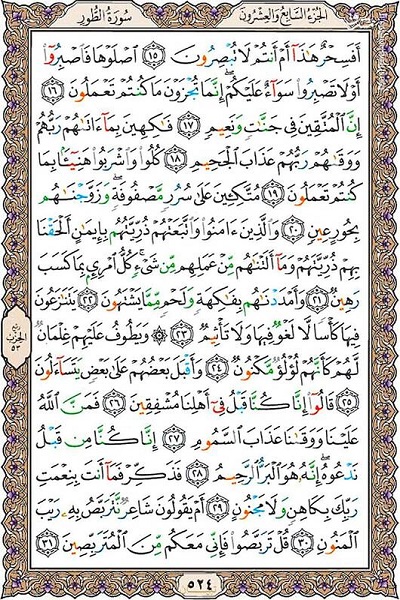 الجزء السابع والعشرون
سورة الطور
أَفَسِحْرٌ هَٰذَا أَمْ أَنتُمْ لَا تُبْصِرُونَ ١٥ ٱصْلَوْهَا فَٱصْبِرُوٓا۟
أَوْ لَا تَصْبِرُوا۟ سَوَآءٌ عَلَيْكُمْ ۖ إِنَّمَا تُجْزَوْنَ مَا كُنتُمْ تَعْمَلُونَ ١٦
إِنَّ ٱلْمُتَّقِينَ فِى جَنَّٰتٍ وَنَعِيمٍ ١٧ فَٰكِهِينَ بِمَآ ءَاتَىٰهُمْ رَبُّهُمْ
وَوَقَىٰهُمْ رَبُّهُمْ عَذَابَ ٱلْجَحِيمِ ١٨ كُلُوا۟ وَٱشْرَبُوا۟ هَنِيٓـًٔۢا بِمَا
كُنتُمْ تَعْمَلُونَ ١٩ مُتَّكِـِٔينَ عَلَىٰ سُرُرٍ مَّصْفُوفَةٍ ۖ وَزَوَّجْنَٰهُم
بِحُورٍ عِينٍ ٢٠ وَٱلَّذِينَ ءَامَنُوا۟ وَٱتَّبَعَتْهُمْ ذُرِّيَّتُهُم بِإِيمَٰنٍ أَلْحَقْنَا
بِهِمْ ذُرِّيَّتَهُمْ وَمَآ أَلَتْنَٰهُم مِّنْ عَمَلِهِم مِّن شَىْءٍ ۚ كُلُّ ٱمْرِئٍۭ بِمَا كَسَبَ
رَهِينٌ ٢١ وَأَمْدَدْنَٰهُم بِفَٰكِهَةٍ وَلَحْمٍ مِّمَّا يَشْتَهُونَ ٢٢ يَتَنَٰزَعُونَ
فِيهَا كَأْسًا لَّا لَغْوٌ فِيهَا وَلَا تَأْثِيمٌ ٢٣ ۞ وَيَطُوفُ عَلَيْهِمْ غِلْمَانٌ
لَّهُمْ كَأَنَّهُمْ لُؤْلُؤٌ مَّكْنُونٌ ٢٤ وَأَقْبَلَ بَعْضُهُمْ عَلَىٰ بَعْضٍ يَتَسَآءَلُونَ
٢٥ قَالُوٓا۟ إِنَّا كُنَّا قَبْلُ فِىٓ أَهْلِنَا مُشْفِقِينَ ٢٦ فَمَنَّ ٱللَّهُ
عَلَيْنَا وَوَقَىٰنَا عَذَابَ ٱلسَّمُومِ ٢٧ إِنَّا كُنَّا مِن قَبْلُ
نَدْعُوهُ ۖ إِنَّهُۥ هُوَ ٱلْبَرُّ ٱلرَّحِيمُ ٢٨ فَذَكِّرْ فَمَآ أَنتَ بِنِعْمَتِ
رَبِّكَ بِكَاهِنٍ وَلَا مَجْنُونٍ ٢٩ أَمْ يَقُولُونَ شَاعِرٌ نَّتَرَبَّصُ بِهِۦ رَيْبَ
ٱلْمَنُونِ ٣٠ قُلْ تَرَبَّصُوا۟ فَإِنِّى مَعَكُم مِّنَ ٱلْمُتَرَبِّصِينَ ٣١
ربع
الحزب
٥٣
٥٢٤